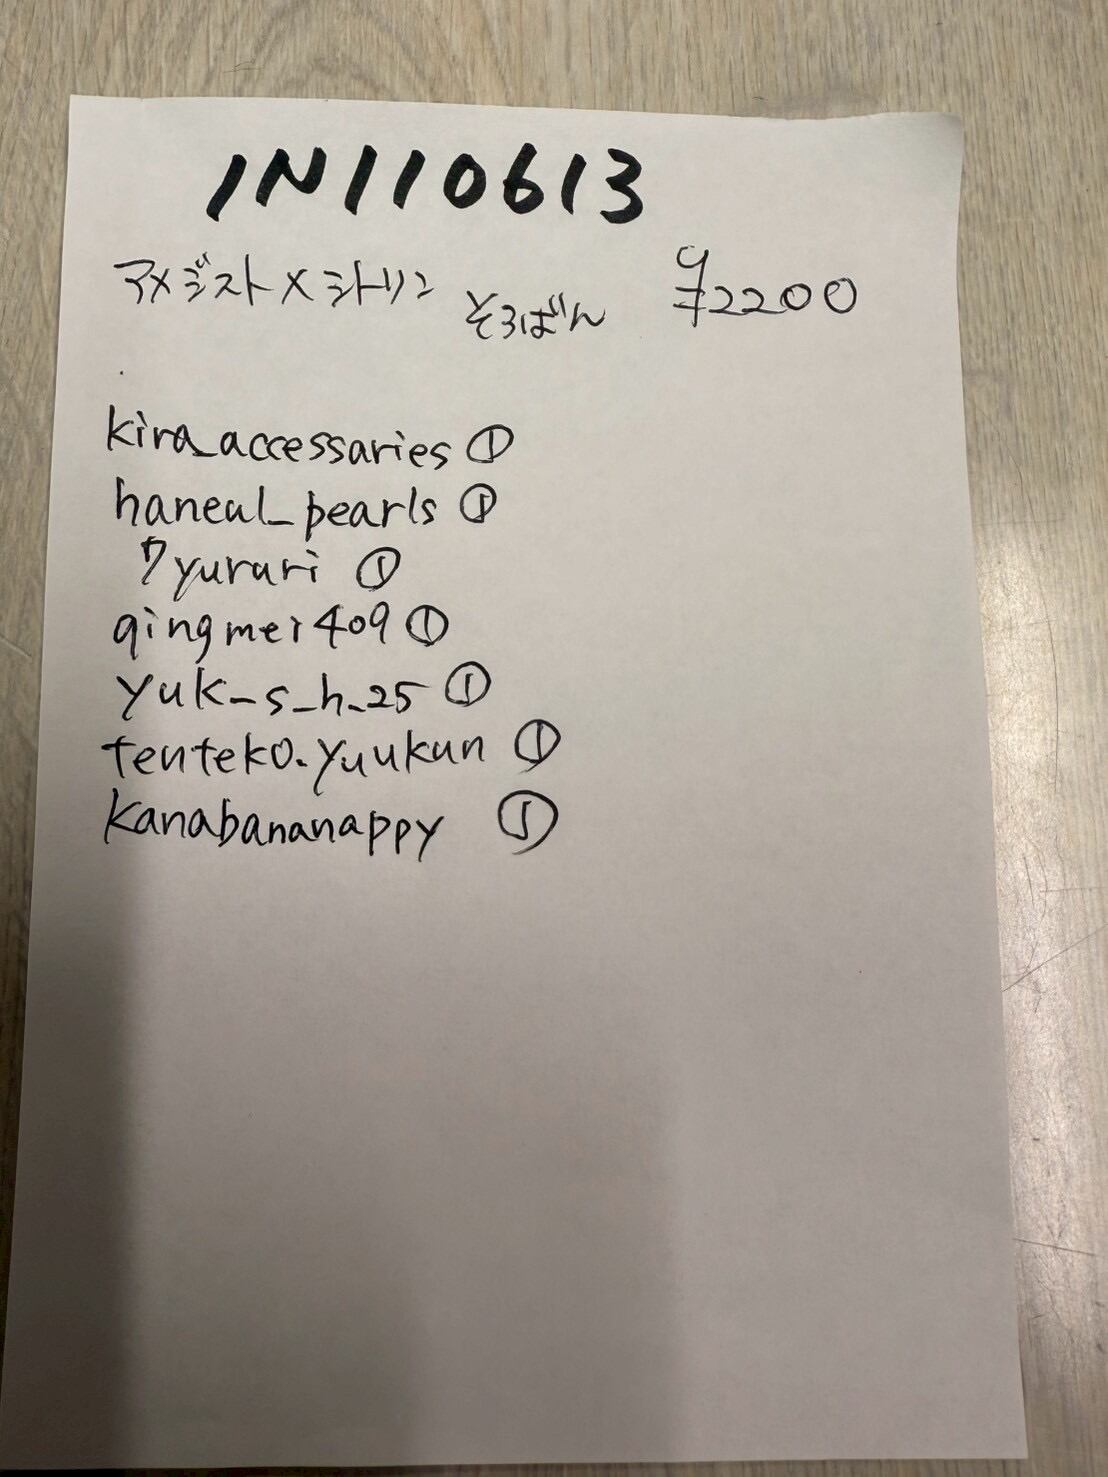 IN110613
アメジスト×シトリン そろばん ¥2200
kira_accessaries ①
haneul_pearls ①
7yurari ①
qingmei409 ①
yuk_s_h_25 ①
tenteko.yuukun ①
kanabananappy ①